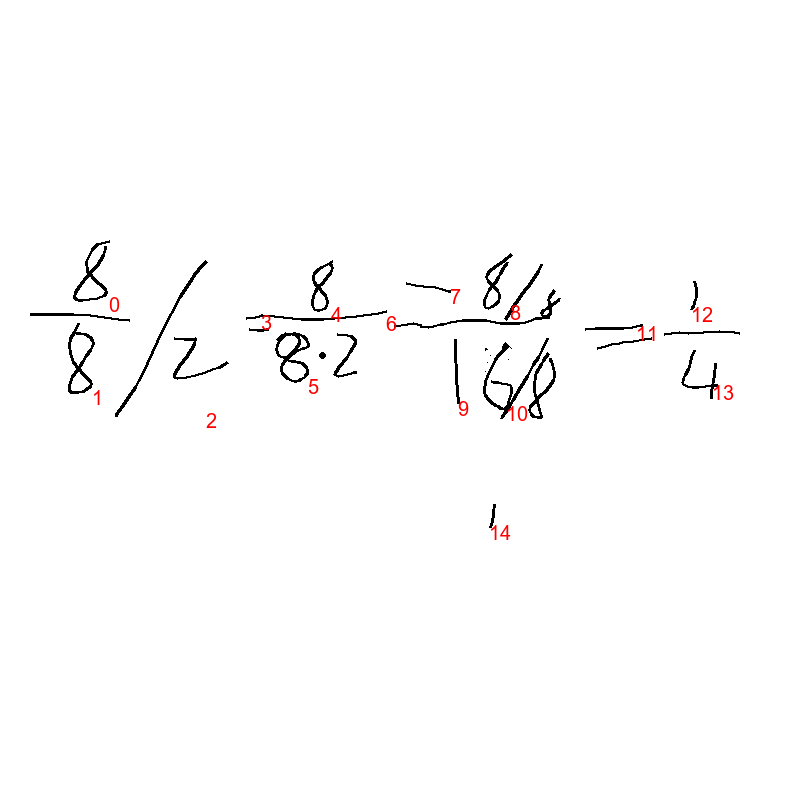 8/8 / 2 = 8/(8·2) = (8/8)/(16/8) = 1/4
0 1 2 3 4 5 6 7 8 9 10 11 12 13
1
14